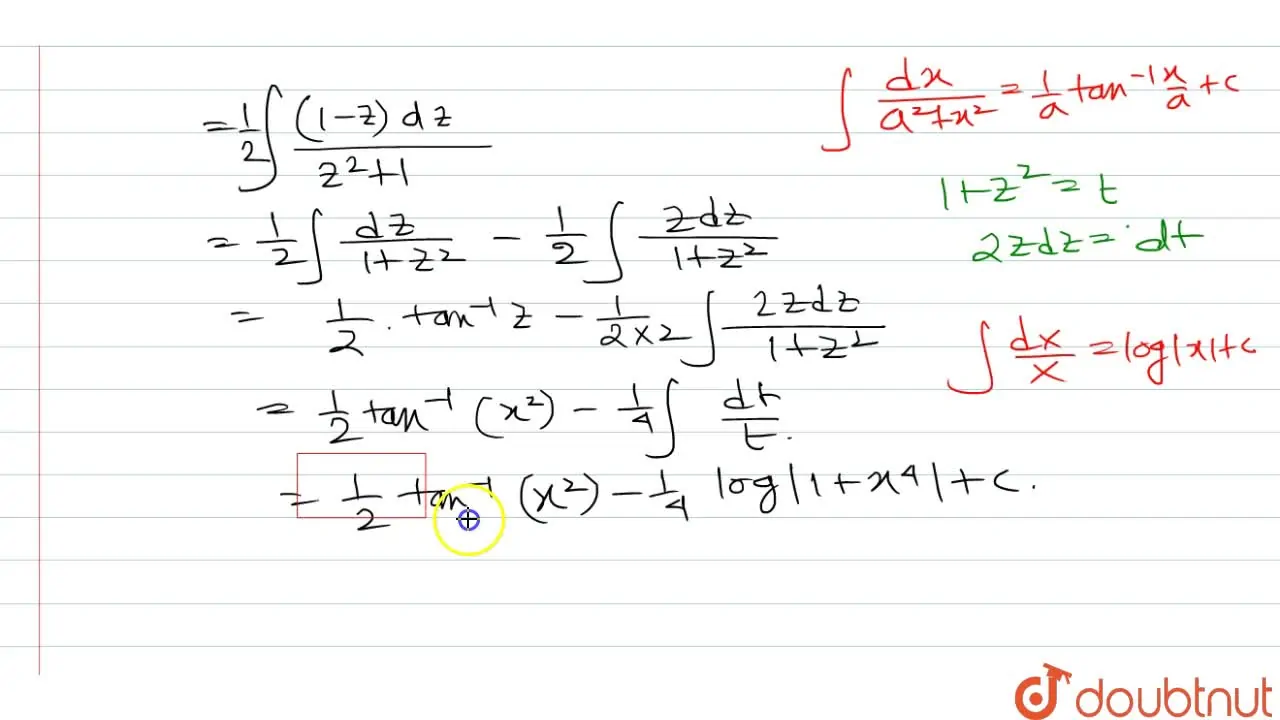 = 1/2 ∫ (1-z) dz / z²+1
= 1/2 ∫ dz / 1+z² - 1/2 ∫ zdz / 1+z²
= 1/2 . tan⁻¹ z - 1/2×2 ∫ 2zdz / 1+z²
= 1/2 tan⁻¹ (x²) - 1/4 ∫ dt / t.
= 1/2 tan⁻¹ (x²) - 1/4 log|1+x⁴|+c.
∫ dx / a²+x² = 1/a tan⁻¹ x/a + c
1+z² = t
2zdz = dt
∫ dx / x = log|x|+c
doubtnut